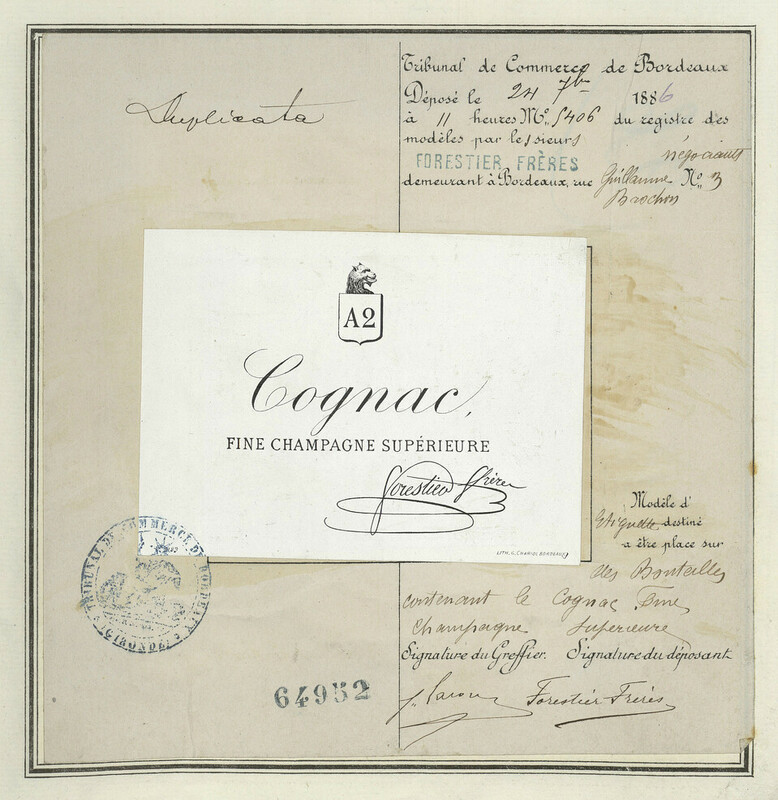 Duplicata
Tribunal de Commerce de Bordeaux
Déposé le 24 7bre 1886
à 11 heures No. 5406 du registre des
modèles par les sieurs
FORESTIER, FRÈRES négociants
demeurant à Bordeaux, rue Guillaume No. 3
Brochon
A2
Cognac,
FINE CHAMPAGNE SUPÉRIEURE
Forestier Frères
LITH. G. CHARIOL BORDEAUX
Modèle d'
Etiquette destiné
a être place sur
des Bouteilles
contenant le Cognac Fine
Champagne Superieure
Signature du Greffier. Signature du déposant
Forestier Frères
TRIBUNAL DE COMMERCE DE BORDEAUX
(GIRONDE)
64952